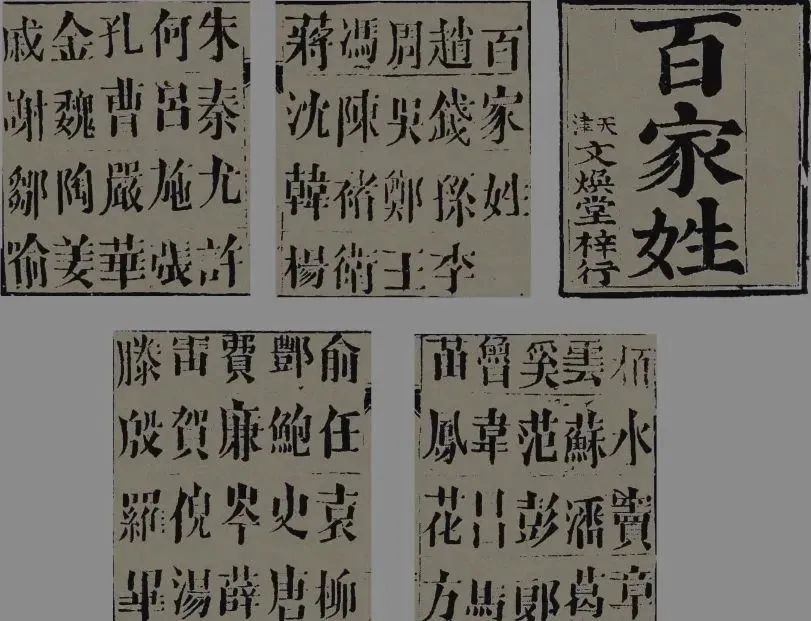 百家姓
天津文煥堂梓行
百家姓
趙錢孫李
周吳鄭王
馮陳褚衛
蔣沈韓楊
朱秦尤許
何呂施張
孔曹嚴華
金魏陶姜
戚謝鄒喻
栢水竇章
雲蘇潘葛
奚范彭郎
魯韋昌馬
苗鳳花方
俞任袁柳
酆鮑史唐
費廉岑薛
雷賀倪湯
滕殷羅畢